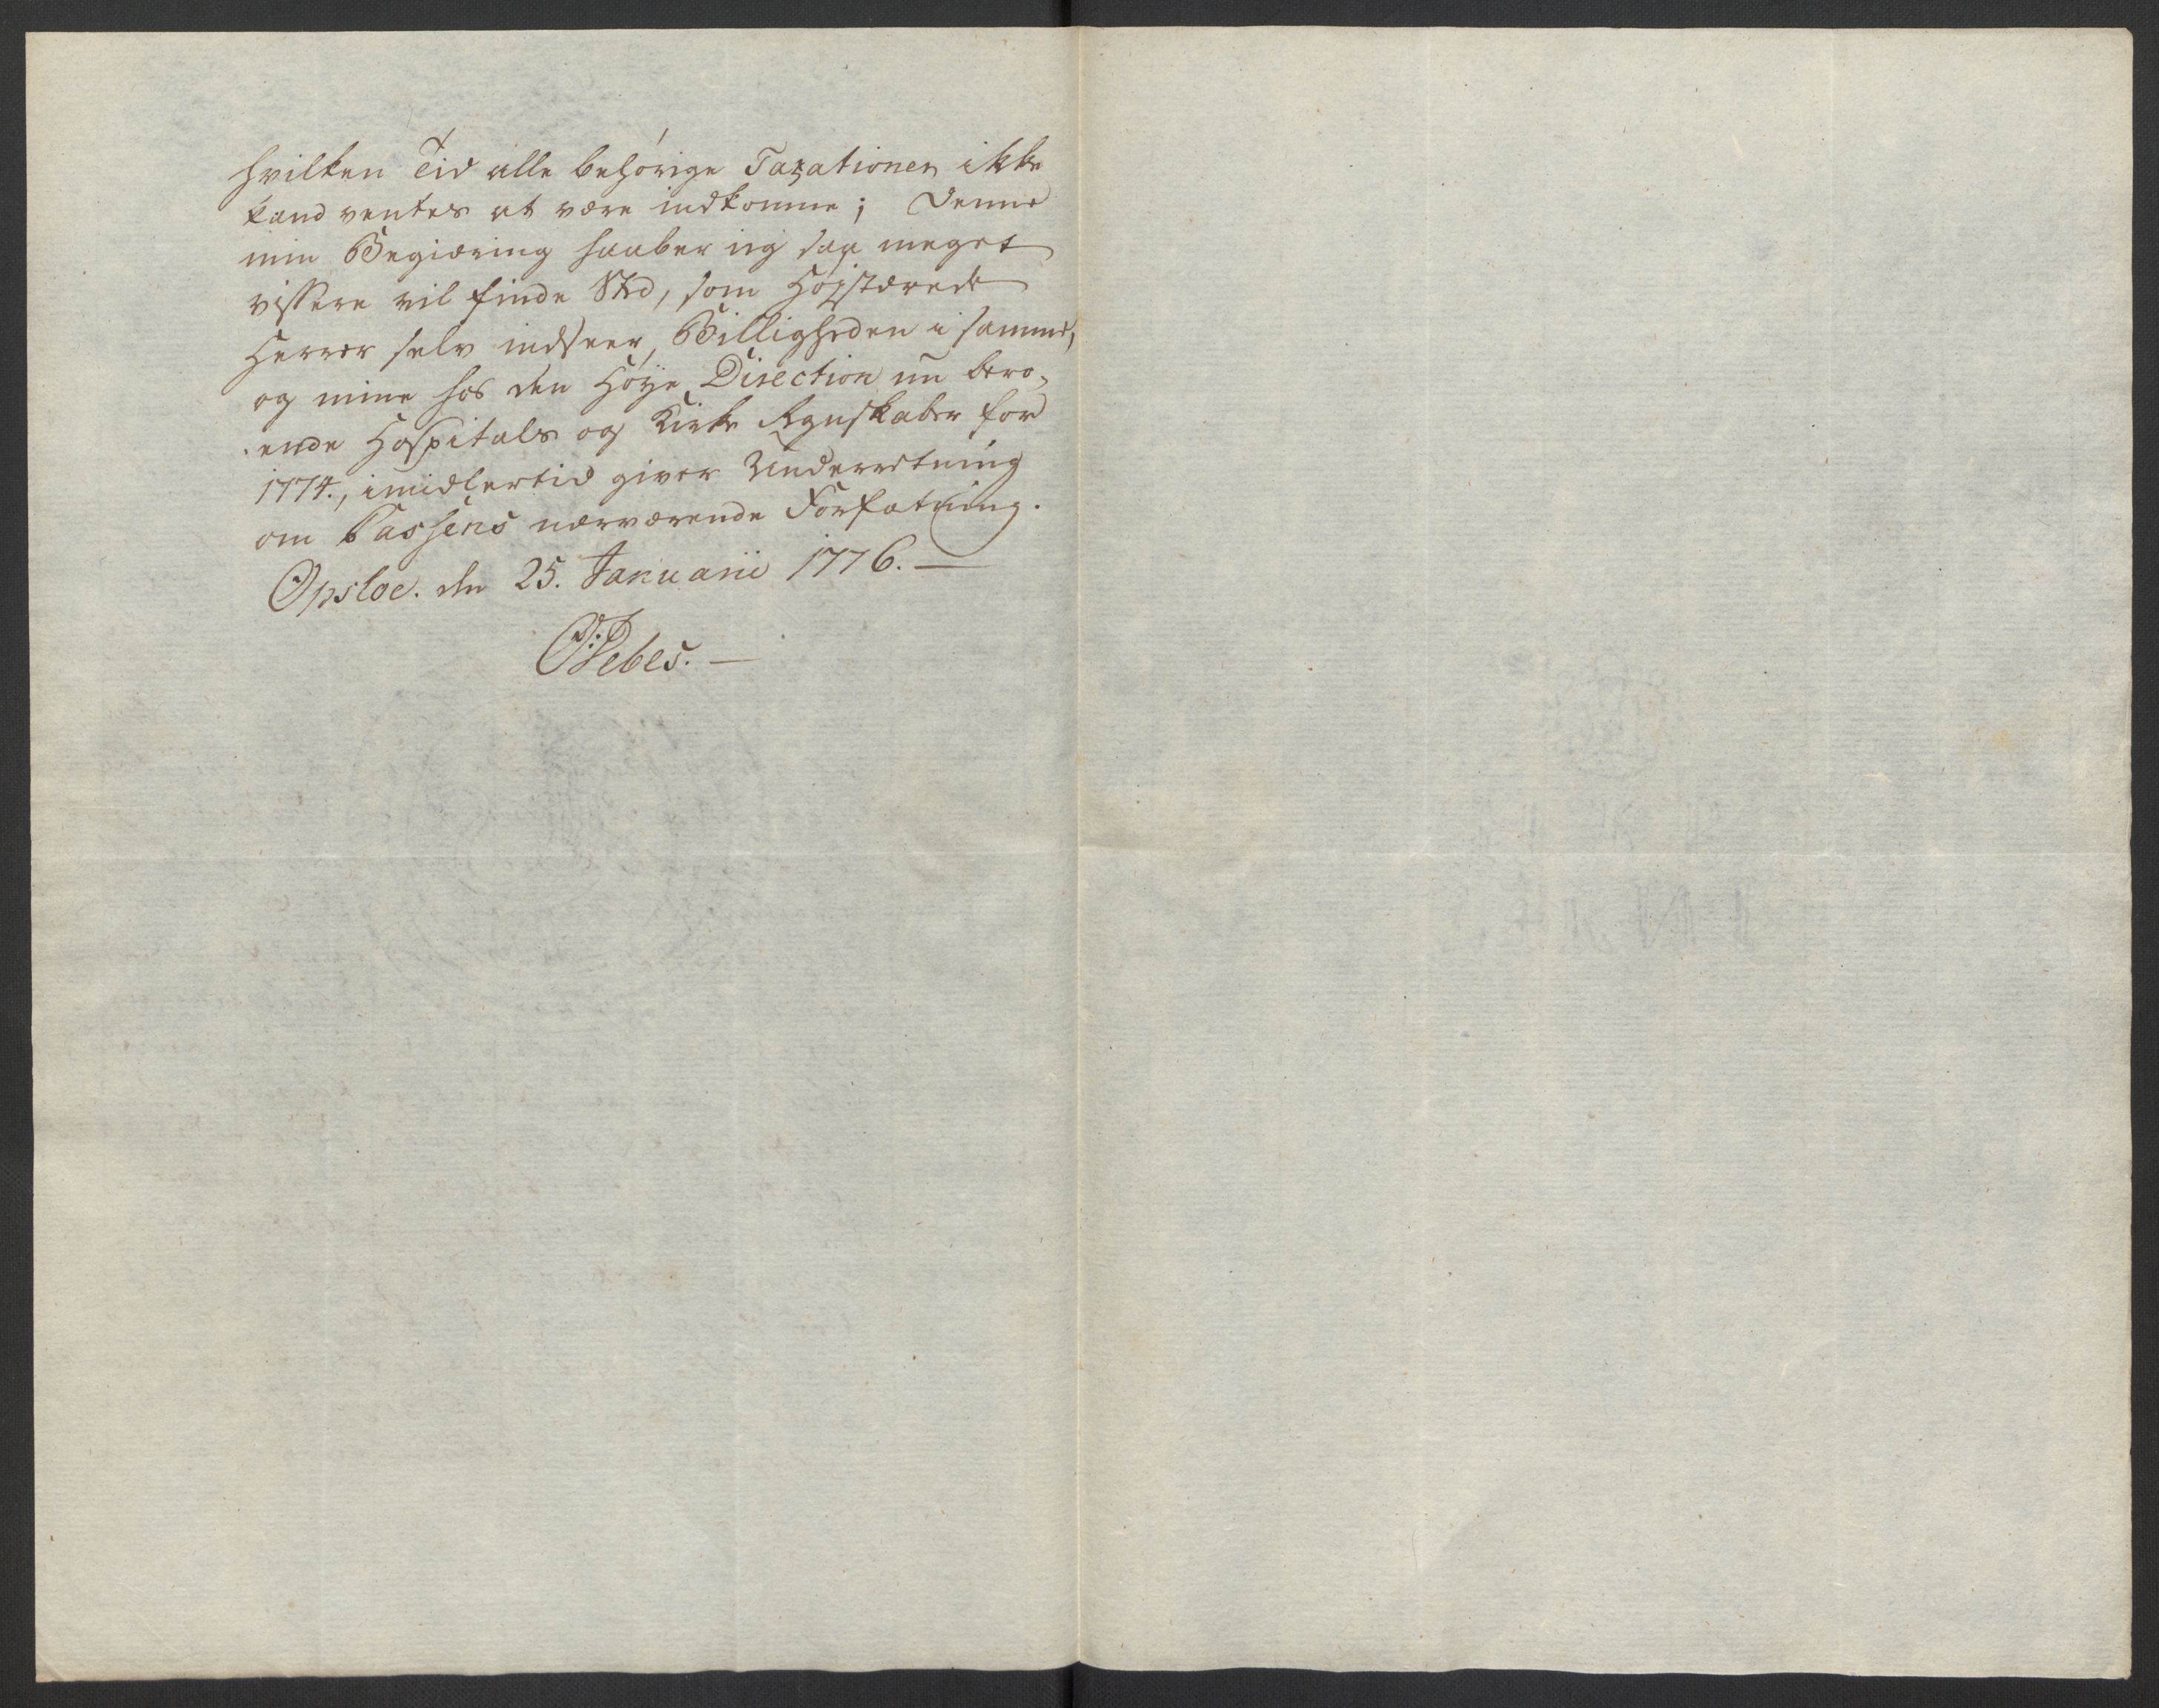 hvilken Tid alle behørige Taxationer ikke
kand ventes at være indkomne; Denne
min Begiæring haaber jeg saa meget
vissere vil finde Sted, som Højstærede
Herrer selv indseer, Billigheden i samme,
og mine hos den Høye Direction nu bero-
ende Hospitals og Kirke Regnskaber for
1774., imidlertid giver Underretning
om Cassens nærværende Forfatning.
Opsloe. den 25. Januarii 1776. —
Debes. —